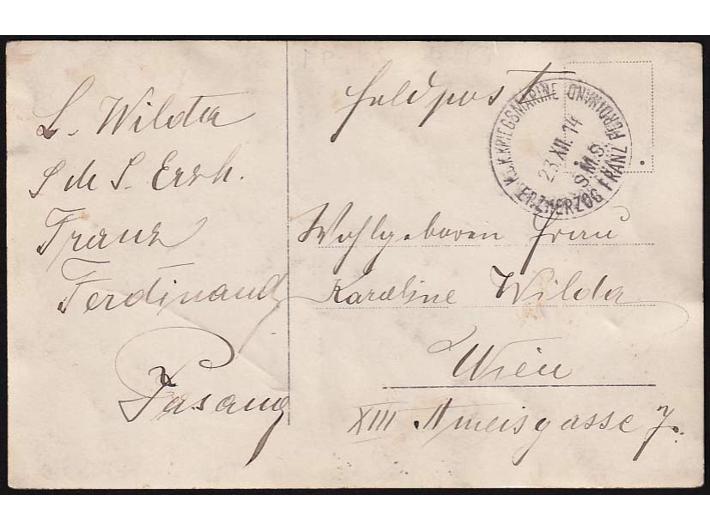 L. Wilda
S M S. Erzh.
Franz
Ferdinand
Pasang
Feldpost
K.u.K. KRIEGSMARINE
23.XII.14
S.M.S.
ERZHERZOG FRANZ FERDINAND
Wohlgeboren Frau
Karoline Wilda
Wien
XIII Ameisgasse 7.